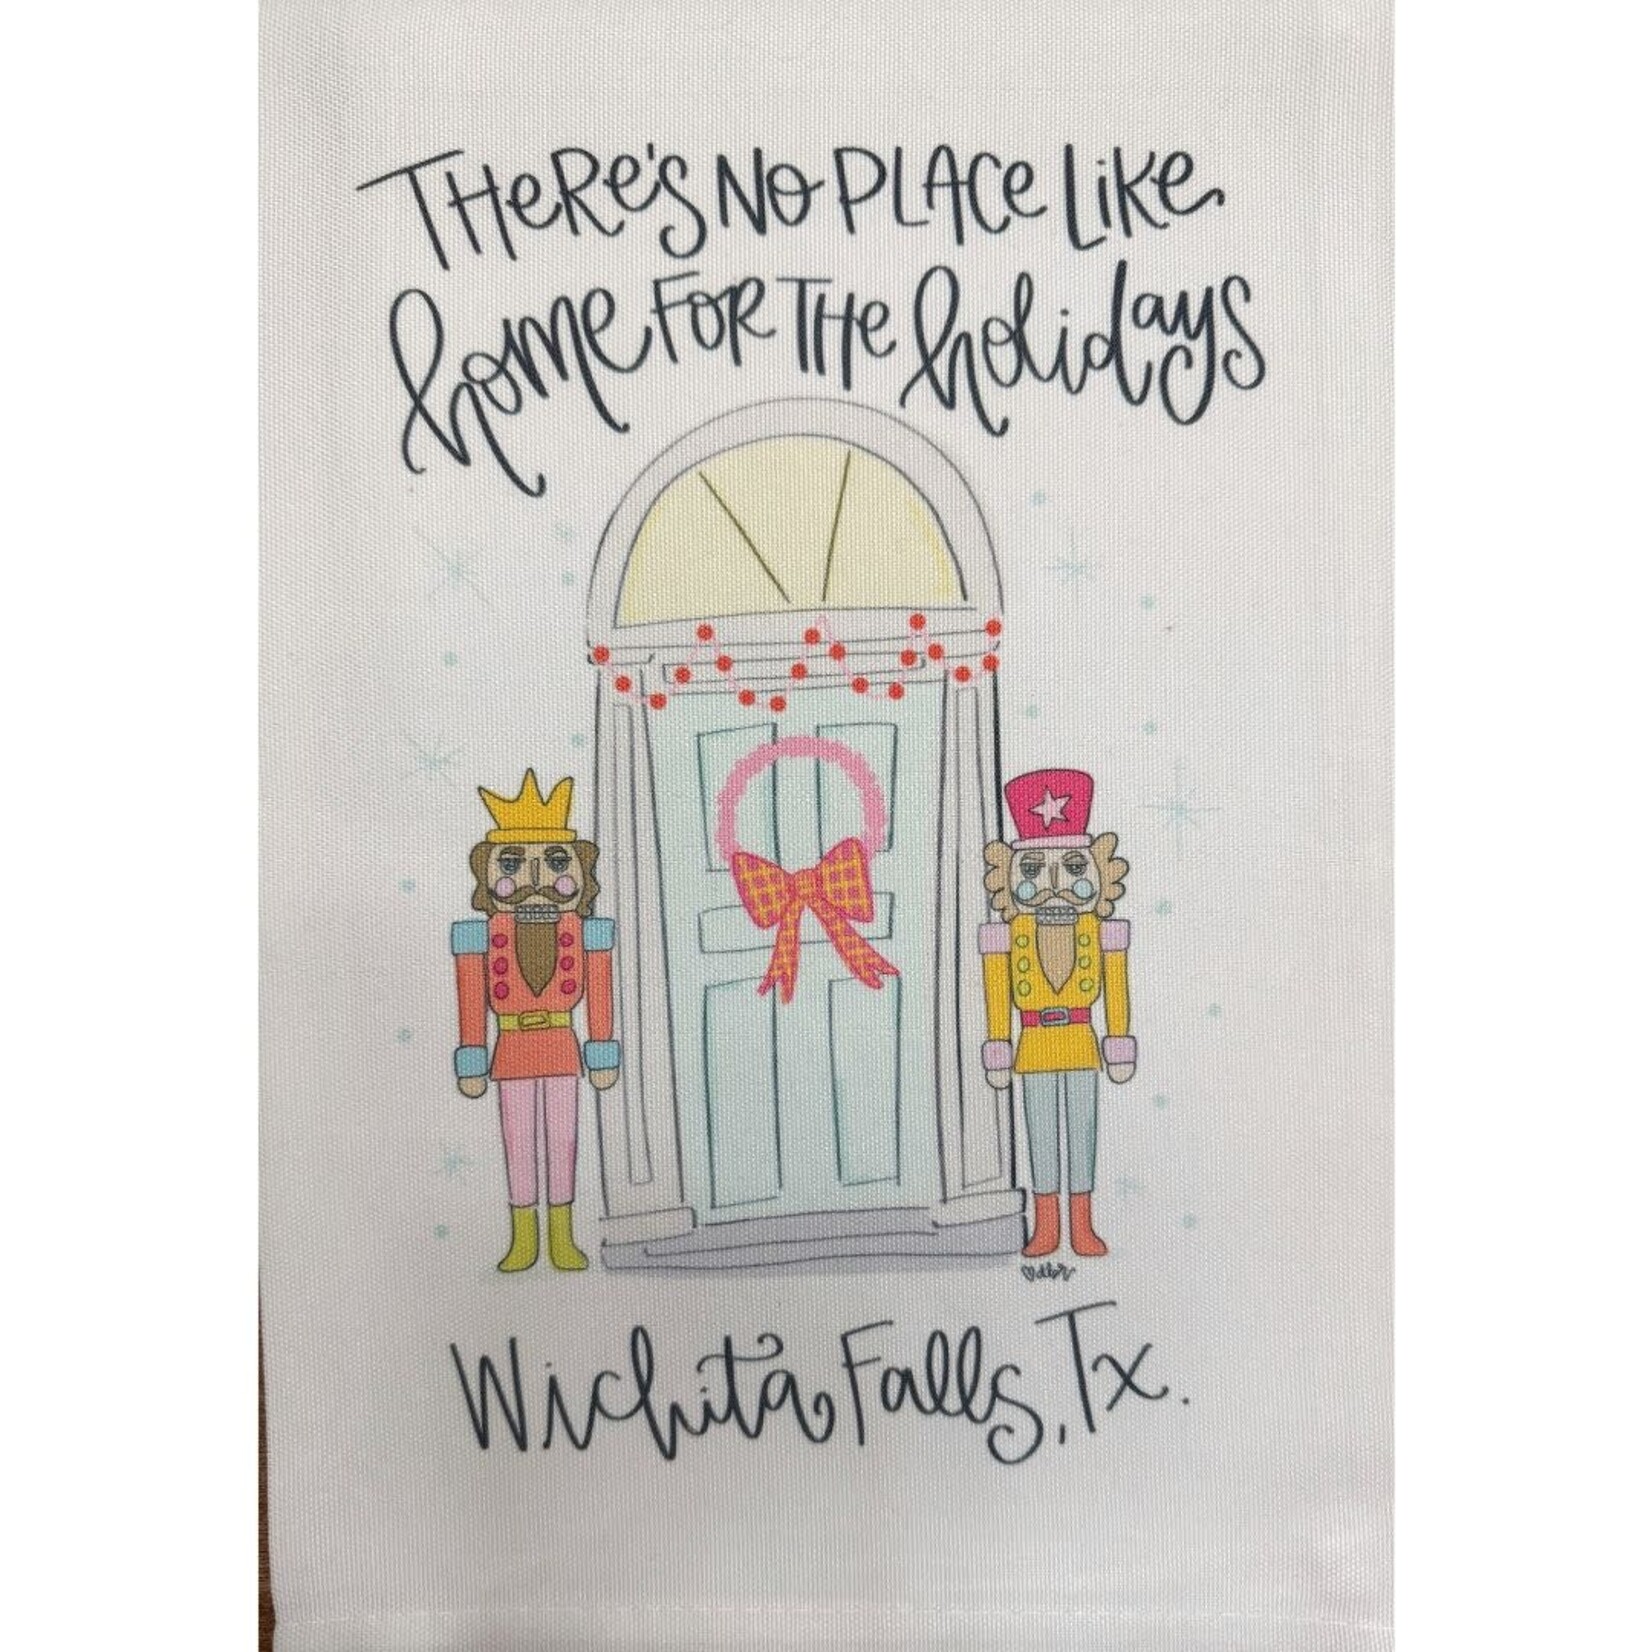 THeRe's NO PLACe Like
home FOR THe holidays
Wichita Falls, Tx.